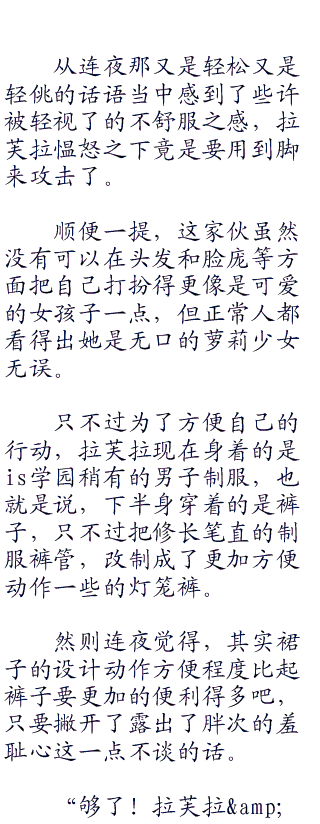 从连夜那又是轻松又是
轻佻的话语当中感到了些许
被轻视了的不舒服之感，拉
芙拉愠怒之下竟是要用到脚
来攻击了。
顺便一提，这家伙虽然
没有可以在头发和脸庞等方
面把自己打扮得更像是可爱
的女孩子一点，但正常人都
看得出她是无口的萝莉少女
无误。
只不过为了方便自己的
行动，拉芙拉现在身着的是
is学园稍有的男子制服，也
就是说，下半身穿着的是裤
子，只不过把修长笔直的制
服裤管，改制成了更加方便
动作一些的灯笼裤。
然则连夜觉得，其实裙
子的设计动作方便程度比起
裤子要更加的便利得多吧，
只要撇开了露出了胖次的羞
耻心这一点不谈的话。
“够了！拉芙拉&amp;